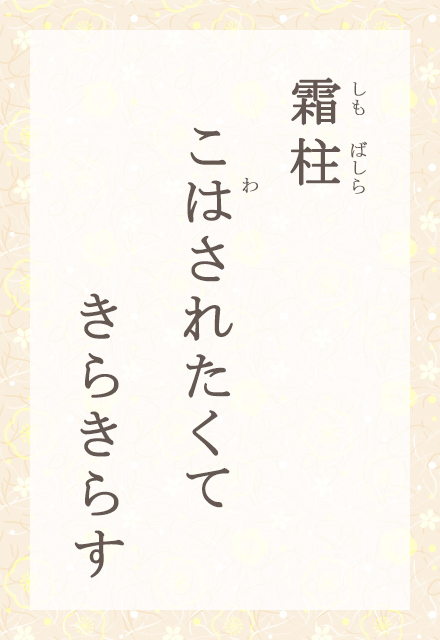 霜柱
しも ばしら
こはされたくて
わ
きらきらす